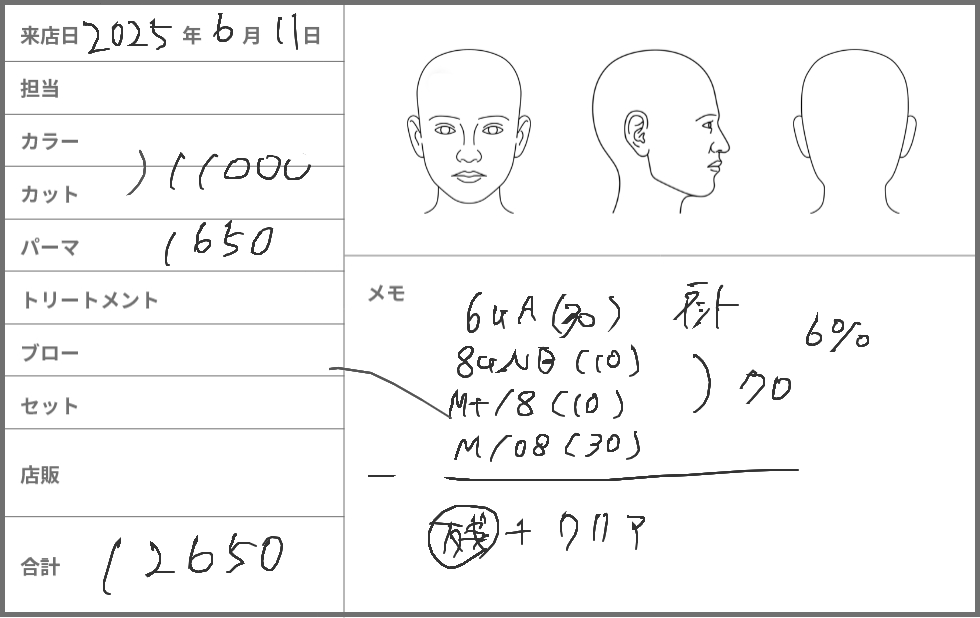 来店日 2025 年 6 月 11 日
担当
カラー
カット ) 11000
パーマ 1650
トリートメント
ブロー
セット
店販
合計 12650
メモ
6GA (30)
6%
8GNB (10)
M+/8 (10) ) 70
M/08 (30)
+ クリア